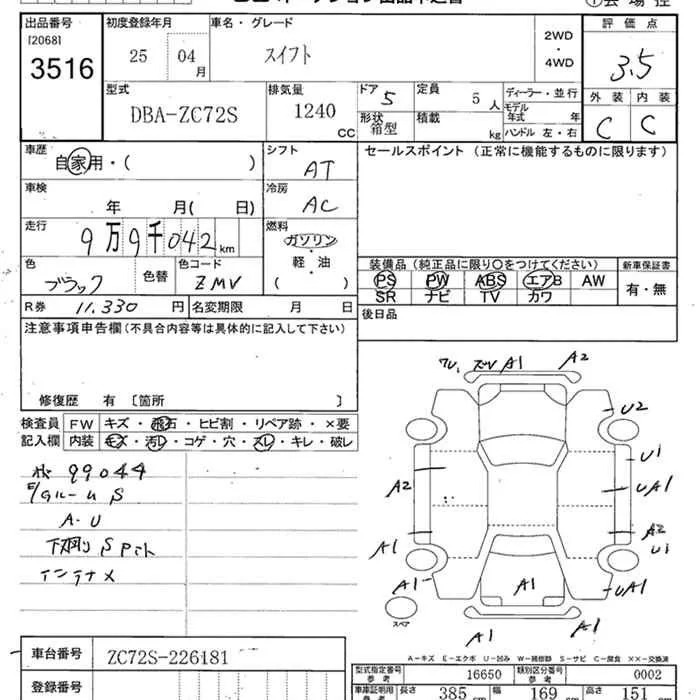 出品番号 初度登録年月 車名・グレード 評価点
[2068]
3516 25 04月 スイフト 2WD・4WD 3.5
型式 排気量 ドア 5 定員 5人 ディーラー・並行 外装 内装
DBA-ZC72S 1240 CC 形状 箱型 積載 kg モデル年式 年 C C
ハンドル 左・右
車歴 自家用・( ) シフト AT セールスポイント (正常に機能するものに限ります)
車検 年 月( 日) 冷房 AC
走行 9万9千042km 燃料 ガソリン
軽・油
( )
色 ブラック 色替 色コード ZMV
装備品 (純正品に限り○をつけてください) 新車保証書
PS PW ABS エアB AW 有・無
SR ナビ TV カワ
R券 11,330円 名変期限 月 日 後日品
注意事項申告欄 (不具合内容等は具体的に記入して下さい)
修復歴 有 〔箇所 〕
検査員 FW キズ・飛石・ヒビ割・リペア跡・×要
記入欄 内装 キズ・汚レ・コゲ・穴・スレ・キレ・破レ
99044
S
A-U
A1 A2
U2
U1
A2 UA1
A2
A1 U1
A1 A1 UA1
スペア
A1 A1
A-キズ E-エクボ U-凹み W-補修跡 S-サビ C-腐食 ××-交換済
車台番号 ZC72S-226181
登録番号
型式指定番号 参考 16650 類別区分番号 参考 0002
車庫証明用 参考 長さ 385 cm 幅 169 cm 高さ 151 cm